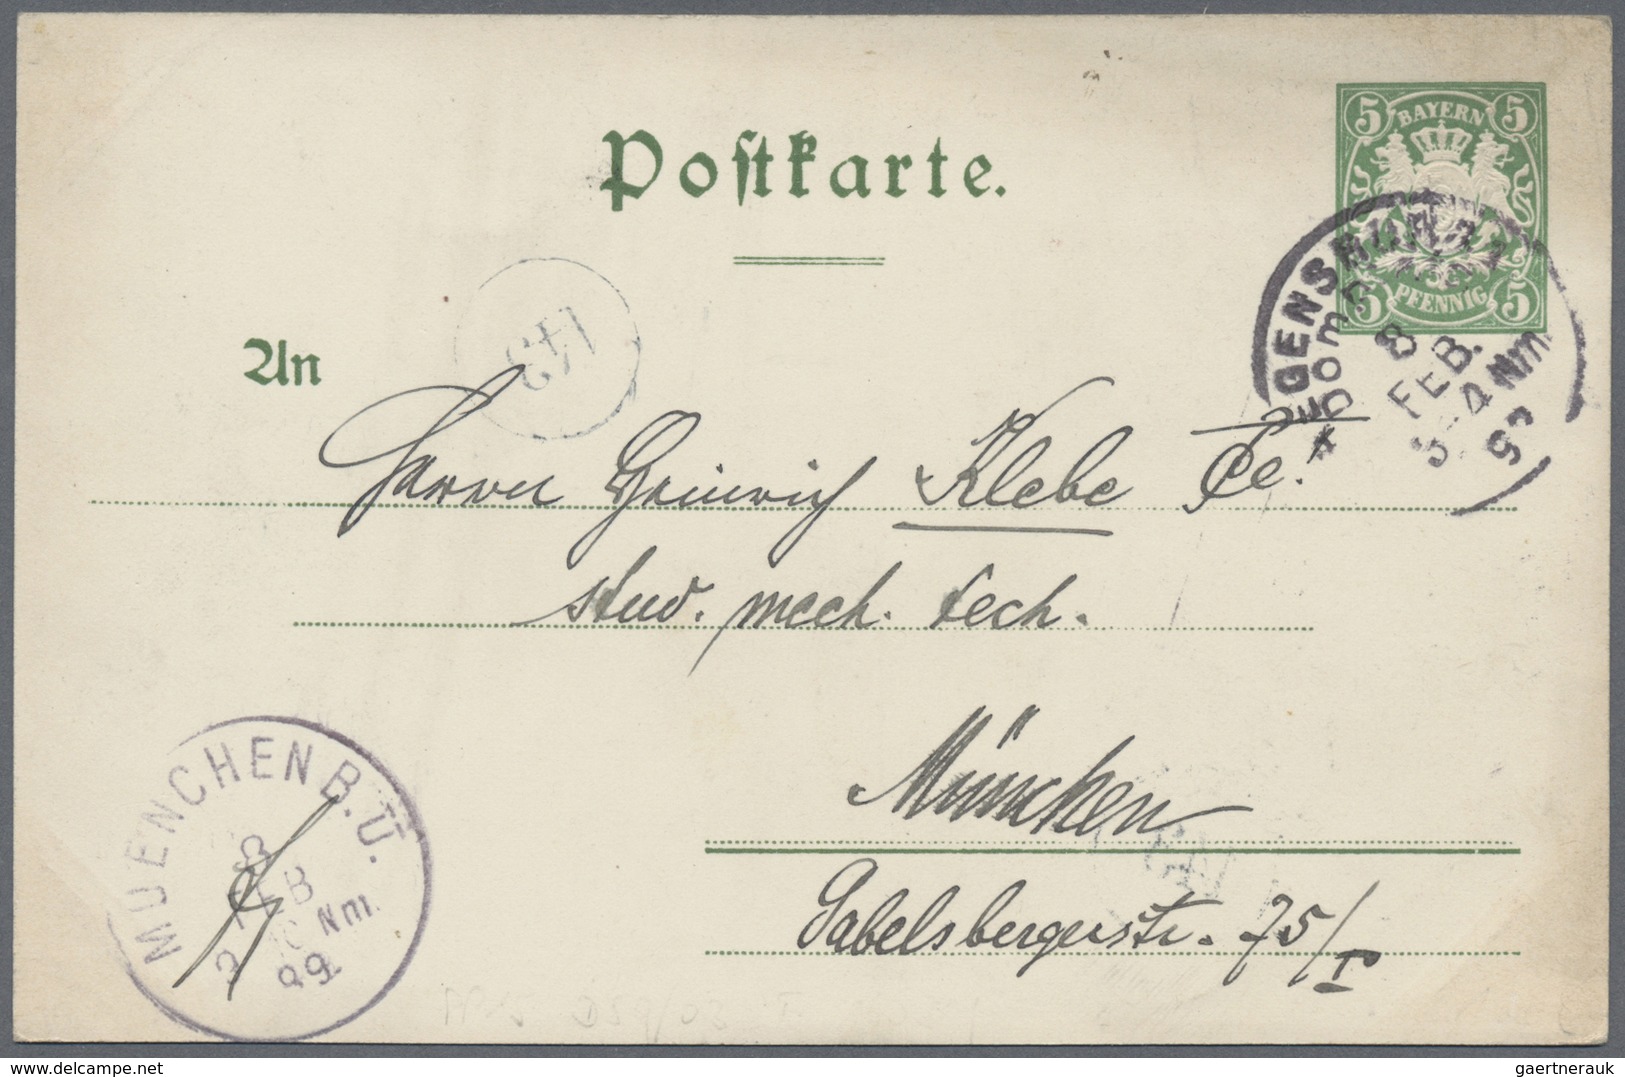 Postkarte.
5 BAYERN 5
5 PFENNIG 5
8
FEB.
4 Nm
143
An
Herrn Heinrich Klebe
stud. mech. tech.
München
Gabelsbergerstr. 75/I
MUENCHEN B.Ü.
8
FEB
Nm
99
gaertnerauk